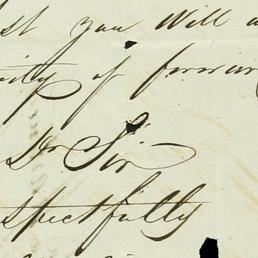 st you will a
nity of forwar
Dr Sir
spectfully